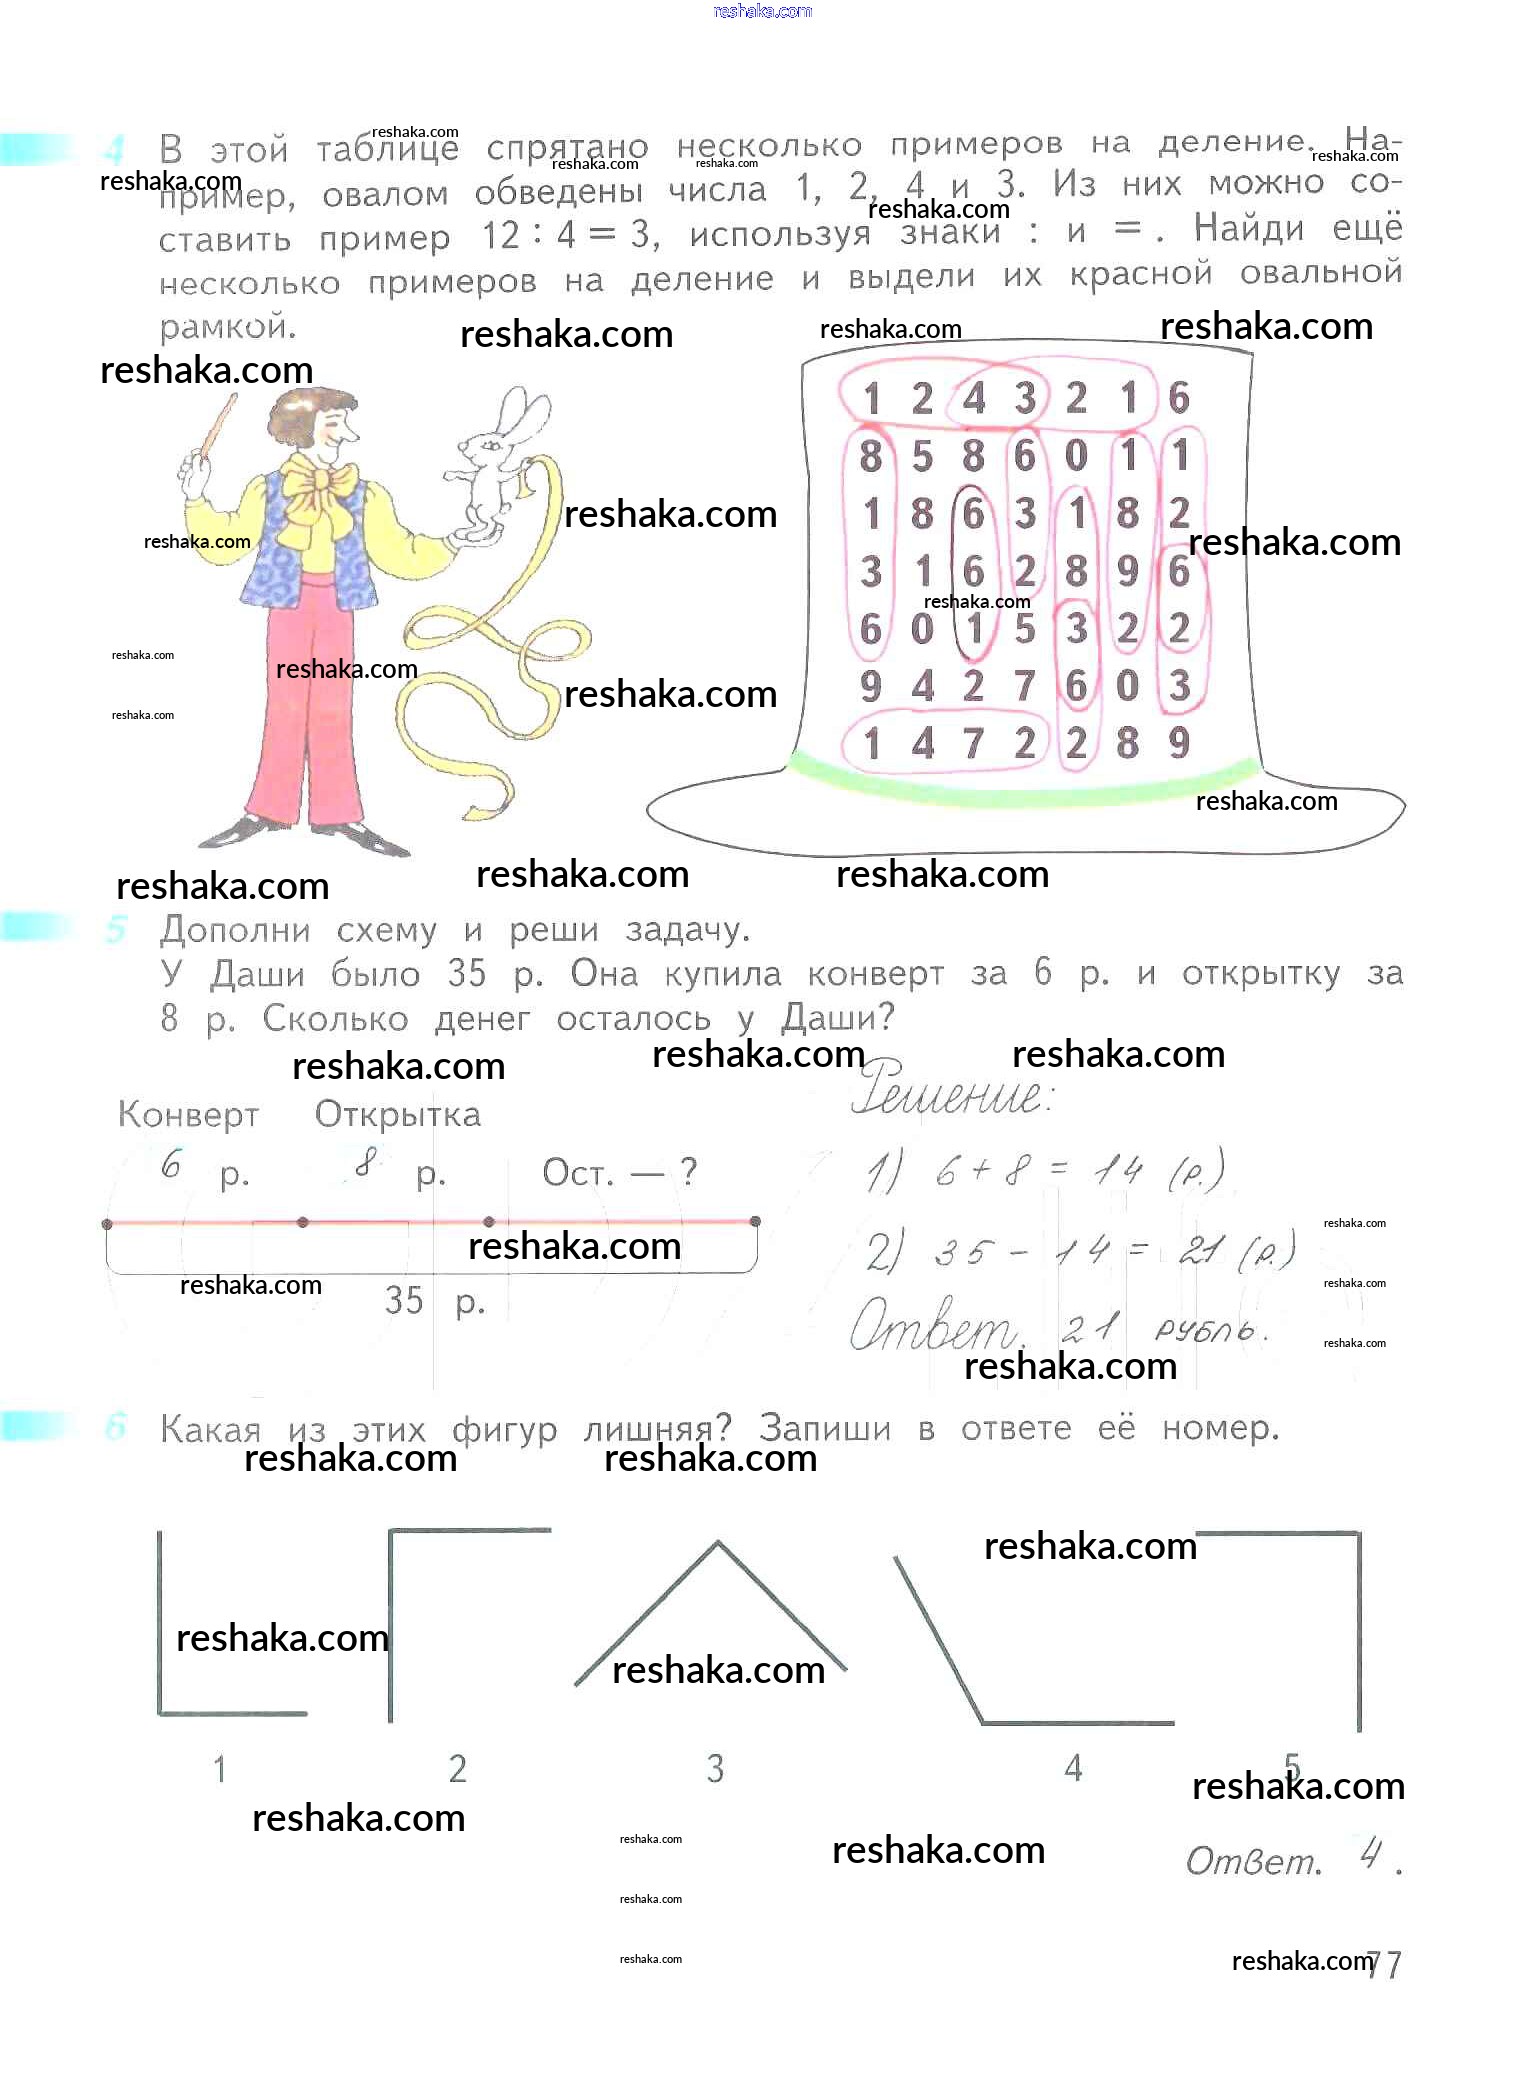 reshaka.com
4 В этой таблице спрятано несколько примеров на деление. На-
reshaka.com
reshaka.com reshaka.com reshaka.com
reshaka.com
пример, овалом обведены числа 1, 2, 4 и 3. Из них можно со-
reshaka.com
ставить пример 12 : 4 = 3, используя знаки : и = . Найди ещё
несколько примеров на деление и выдели их красной овальной
рамкой.
reshaka.com reshaka.com reshaka.com
reshaka.com
1 2 4 3 2 1 6
8 5 8 6 0 1 1
1 8 6 3 1 8 2
reshaka.com
reshaka.com reshaka.com
3 1 6 2 8 9 6
reshaka.com
6 0 1 5 3 2 2
reshaka.com
reshaka.com
9 4 2 7 6 0 3
reshaka.com
reshaka.com
1 4 7 2 2 8 9
reshaka.com
reshaka.com reshaka.com reshaka.com
5 Дополни схему и реши задачу.
У Даши было 35 р. Она купила конверт за 6 р. и открытку за
8 р. Сколько денег осталось у Даши?
reshaka.com reshaka.com reshaka.com
Решение:
Конверт Открытка
6 р. 8 р. Ост. — ?
1) 6 + 8 = 14 (р.)
reshaka.com
reshaka.com
2) 35 - 14 = 21 (р.)
reshaka.com
reshaka.com
35 р.
Ответ. 21 рубль.
reshaka.com
reshaka.com
6 Какая из этих фигур лишняя? Запиши в ответе её номер.
reshaka.com reshaka.com
reshaka.com
reshaka.com
reshaka.com
1 2 3 4 5
reshaka.com
reshaka.com
reshaka.com
reshaka.com
Ответ. 4 .
reshaka.com
reshaka.com
reshaka.com
77